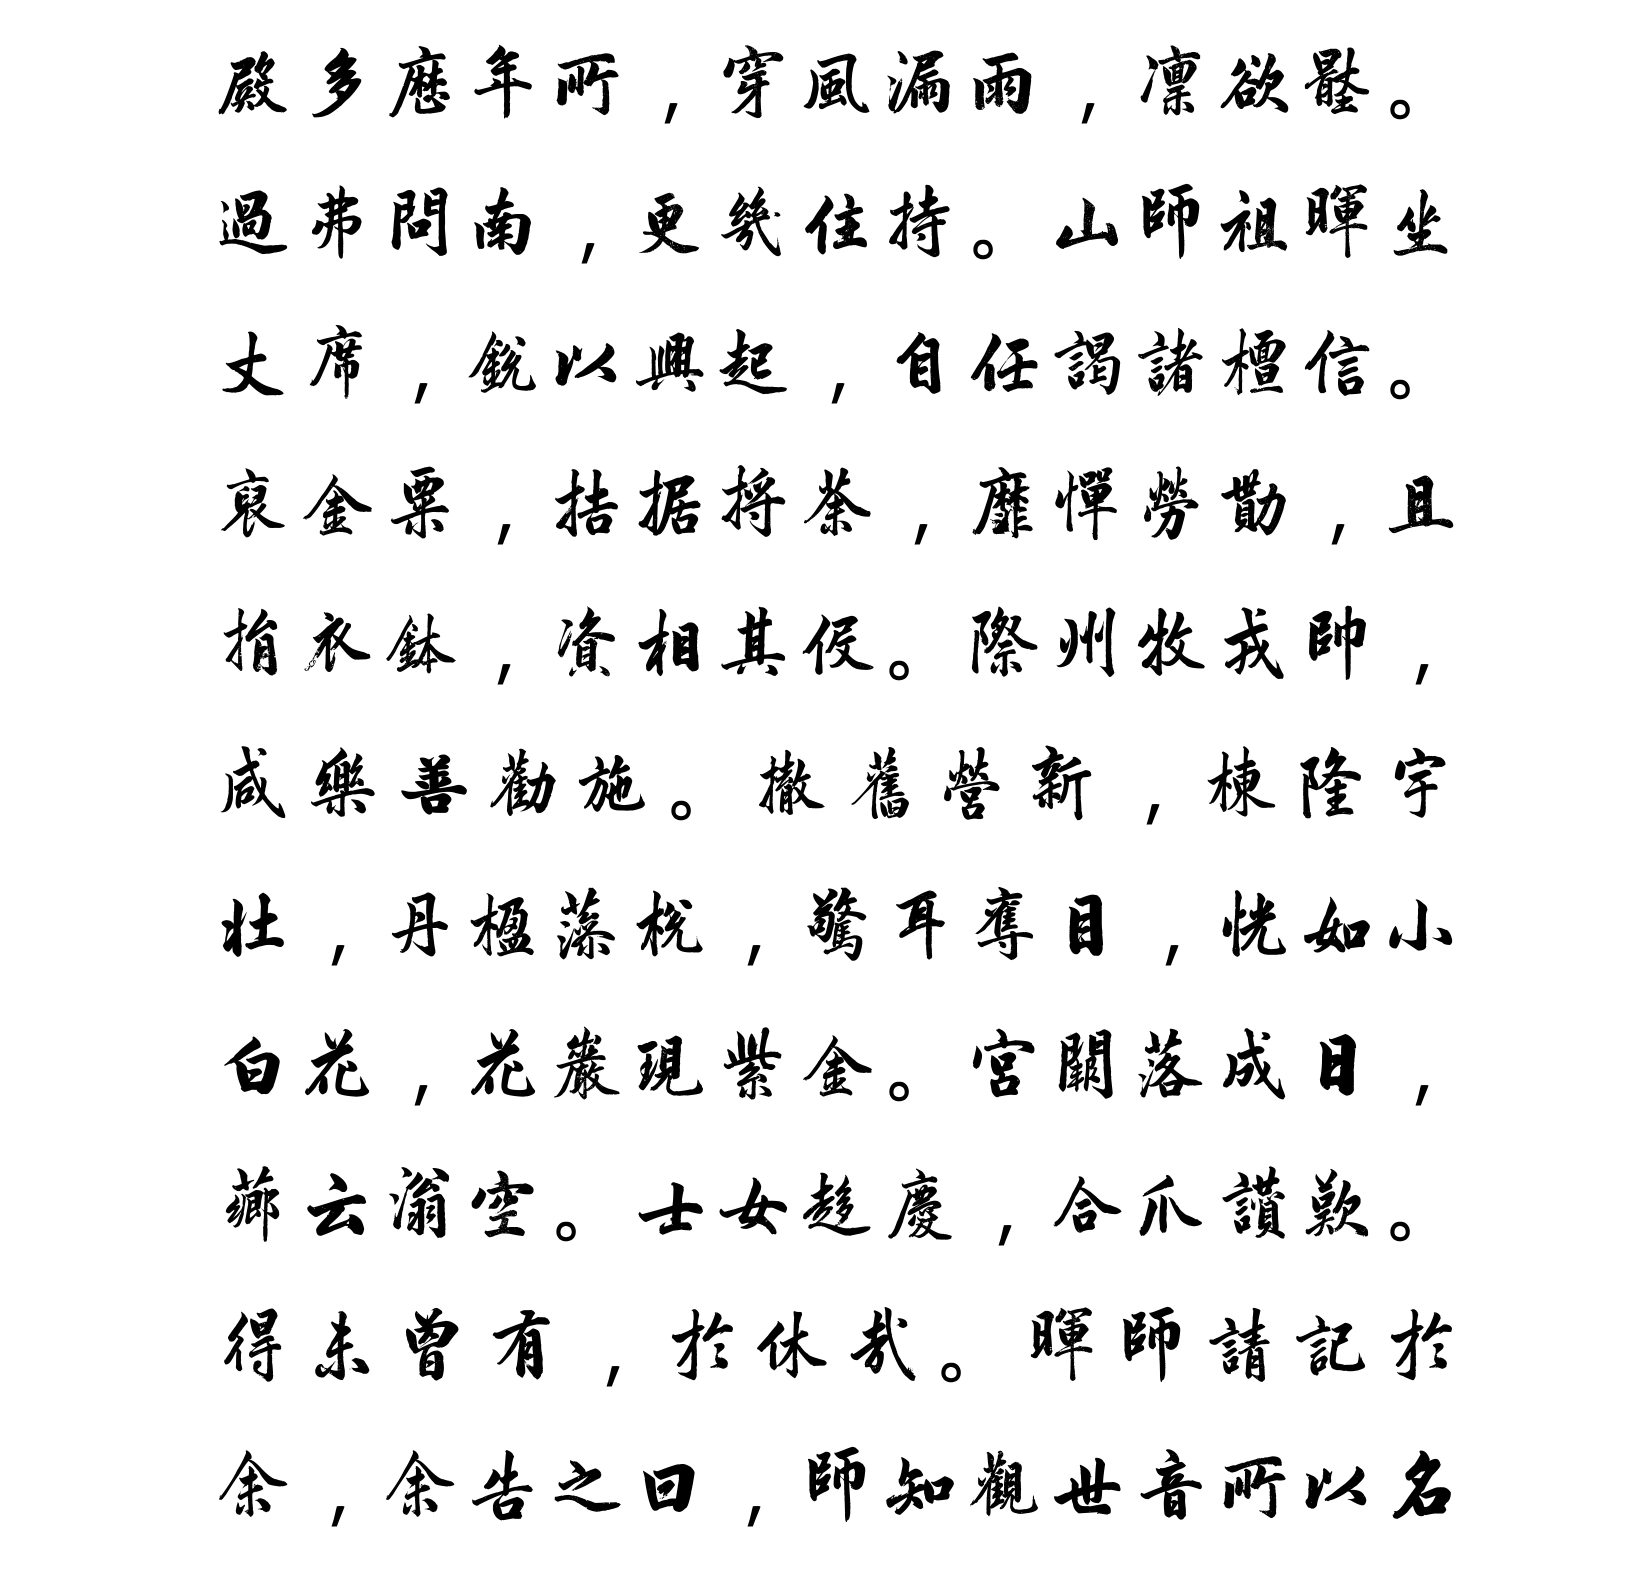 殿多歷年所，穿風漏雨，凜欲壓。
過弗問南，更幾住持。山師祖暉坐
丈席，銳以興起，自任謁諸檀信。
裒金粟，拮据捋荼，靡憚勞勩，且
捐衣鉢，資相其役。際州牧戎帥，
咸樂善勸施。撤舊營新，棟隆宇
壯，丹楹藻梲，驚耳奪目，恍如小
白花，花巖現紫金。宮闕落成日，
薌云滃空。士女趍慶，合爪讚歎。
得未曾有，於休哉。暉師請記於
余，余告之曰，師知觀世音所以名